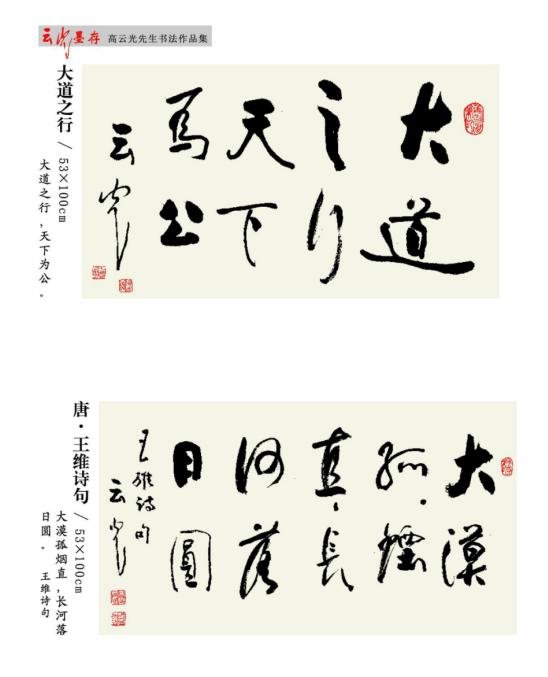 云光墨存 高云光先生书法作品集
大道之行 / 53×100cm
大道之行，天下为公。
大道
之行
天下
為公
云光
唐·王维诗句 / 53×100cm
大漠孤烟直，长河落
日圆。 王维诗句
大漠
孤煙
直長
河落
日圓
王維詩句
云光